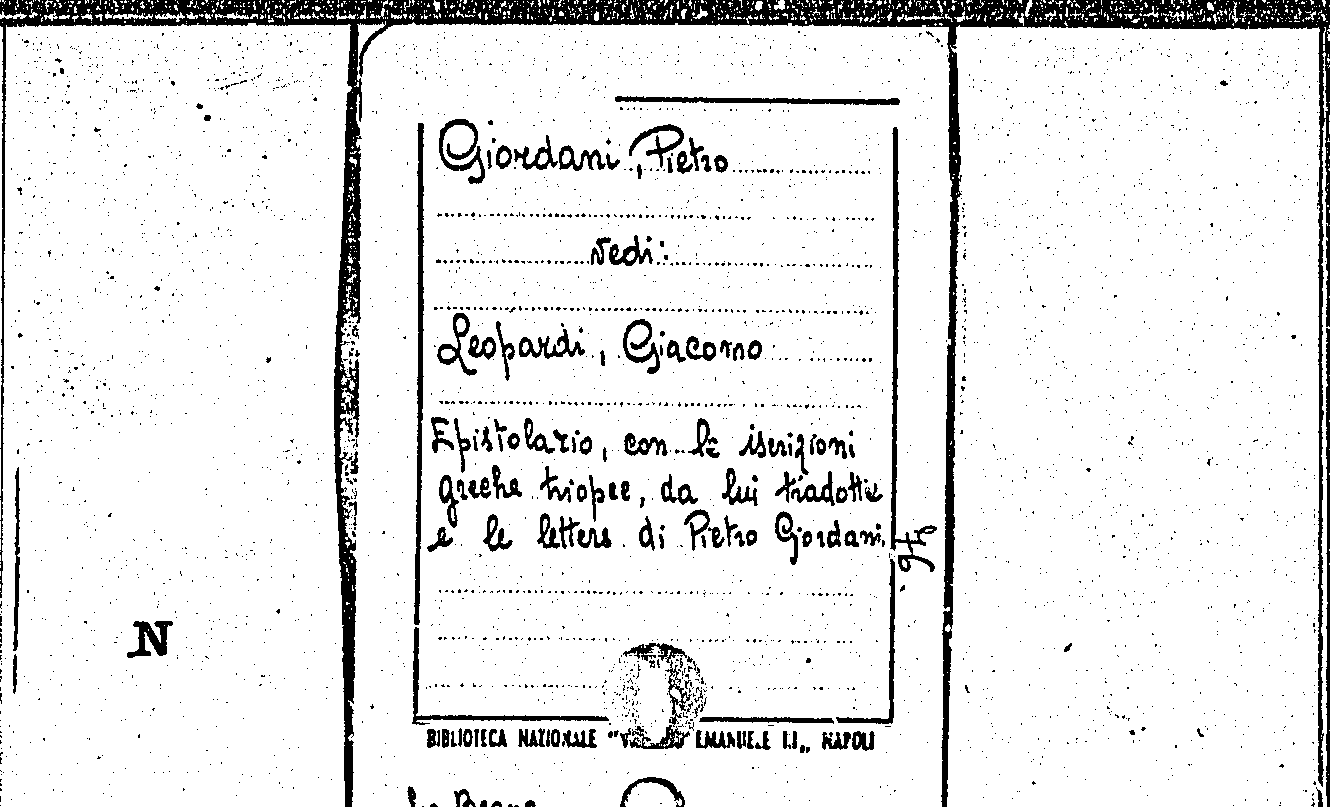 Giordani, Pietro
vedi:
Leopardi, Giacomo
Epistolario, con le iscrizioni
greche triopee, da lui tradotte
e le lettere di Pietro Giordani.
N
BIBLIOTECA NAZIONALE " EMANUELE III,, NAPOLI